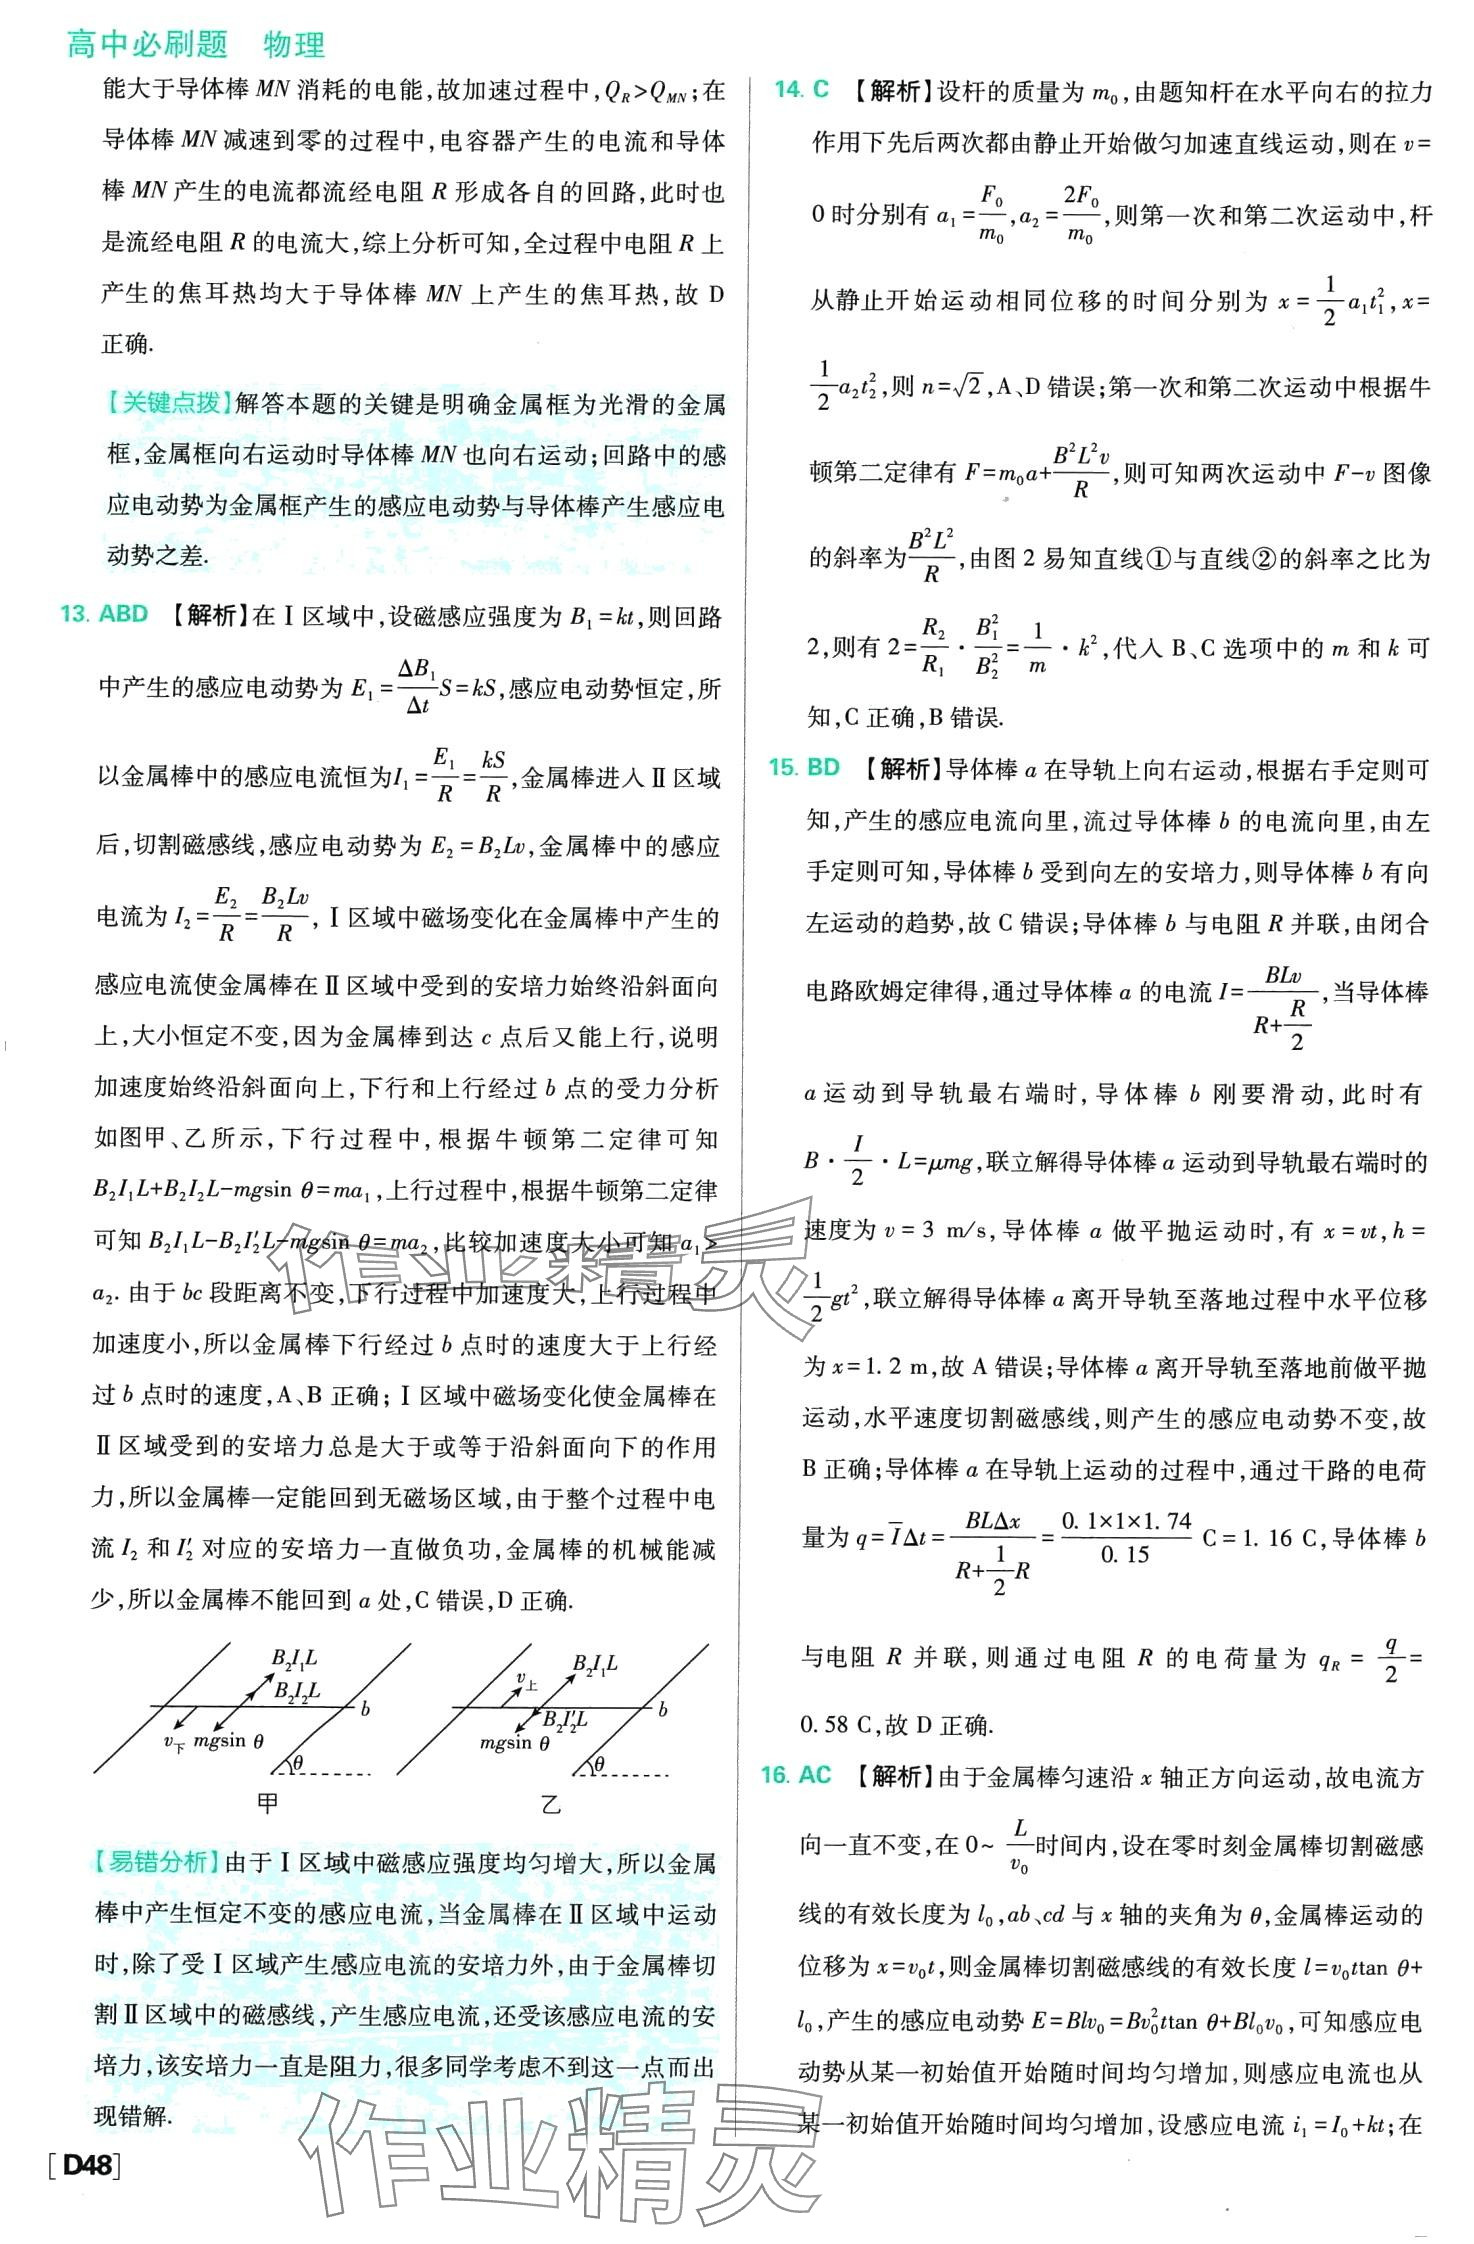 高中必刷题　物理
能大于导体棒 MN 消耗的电能,故加速过程中,Q_R>Q_{MN};在
导体棒 MN 减速到零的过程中,电容器产生的电流和导体
棒 MN 产生的电流都流经电阻 R 形成各自的回路,此时也
是流经电阻 R 的电流大,综上分析可知,全过程中电阻 R 上
产生的焦耳热均大于导体棒 MN 上产生的焦耳热,故 D
正确.
【关键点拨】解答本题的关键是明确金属框为光滑的金属
框,金属框向右运动时导体棒 MN 也向右运动;回路中的感
应电动势为金属框产生的感应电动势与导体棒产生感应电
动势之差.
13. ABD 【解析】在Ⅰ区域中,设磁感应强度为 B₁=kt,则回路
中产生的感应电动势为 E₁=ΔB₁/Δt S=kS,感应电动势恒定,所
以金属棒中的感应电流恒为I₁=E₁/R=kS/R,金属棒进入Ⅱ区域
后,切割磁感线,感应电动势为 E₂=B₂Lv,金属棒中的感应
电流为 I₂=E₂/R=B₂Lv/R,Ⅰ区域中磁场变化在金属棒中产生的
感应电流使金属棒在Ⅱ区域中受到的安培力始终沿斜面向
上,大小恒定不变,因为金属棒到达 c 点后又能上行,说明
加速度始终沿斜面向上,下行和上行经过 b 点的受力分析
如图甲、乙所示,下行过程中,根据牛顿第二定律可知
B₂I₁L+B₂I₂L-mgsin θ=ma₁,上行过程中,根据牛顿第二定律
可知 B₂I₁L-B₂I₂′L-mgsin θ=ma₂,比较加速度大小可知 a₁>
a₂.由于 bc 段距离不变,下行过程中加速度大,上行过程中
加速度小,所以金属棒下行经过 b 点时的速度大于上行经
过 b 点时的速度,A、B 正确;Ⅰ区域中磁场变化使金属棒在
Ⅱ区域受到的安培力总是大于或等于沿斜面向下的作用
力,所以金属棒一定能回到无磁场区域,由于整个过程中电
流 I₂ 和 I₂′ 对应的安培力一直做负功,金属棒的机械能减
少,所以金属棒不能回到 a 处,C 错误,D 正确.
B₂I₁L
B₂I₂L
b
v下 mgsin θ
θ
甲
B₂I₁L
v上
B₂I₂′L
b
mgsin θ
θ
乙
【易错分析】由于Ⅰ区域中磁感应强度均匀增大,所以金属
棒中产生恒定不变的感应电流,当金属棒在Ⅱ区域中运动
时,除了受Ⅰ区域产生感应电流的安培力外,由于金属棒切
割Ⅱ区域中的磁感线,产生感应电流,还受该感应电流的安
培力,该安培力一直是阻力,很多同学考虑不到这一点而出
现错解.
[D48]
14. C 【解析】设杆的质量为 m₀,由题知杆在水平向右的拉力
作用下先后两次都由静止开始做匀加速直线运动,则在 v=
0 时分别有 a₁=F₀/m₀,a₂=2F₀/m₀,则第一次和第二次运动中,杆
从静止开始运动相同位移的时间分别为 x=1/2 a₁t₁²,x=
1/2 a₂t₂²,则 n=√2,A、D 错误;第一次和第二次运动中根据牛
顿第二定律有 F=m₀a+B²L²v/R,则可知两次运动中 F-v 图像
的斜率为B²L²/R,由图 2 易知直线①与直线②的斜率之比为
2,则有 2=R₂/R₁·B₁²/B₂²=1/m·k²,代入 B、C 选项中的 m 和 k 可
知,C 正确,B 错误.
15. BD 【解析】导体棒 a 在导轨上向右运动,根据右手定则可
知,产生的感应电流向里,流过导体棒 b 的电流向里,由左
手定则可知,导体棒 b 受到向左的安培力,则导体棒 b 有向
左运动的趋势,故 C 错误;导体棒 b 与电阻 R 并联,由闭合
电路欧姆定律得,通过导体棒 a 的电流 I=BLv/(R+R/2),当导体棒
a 运动到导轨最右端时,导体棒 b 刚要滑动,此时有
B·I/2·L=μmg,联立解得导体棒 a 运动到导轨最右端时的
速度为 v=3 m/s,导体棒 a 做平抛运动时,有 x=vt,h=
1/2 gt²,联立解得导体棒 a 离开导轨至落地过程中水平位移
为 x=1.2 m,故 A 错误;导体棒 a 离开导轨至落地前做平抛
运动,水平速度切割磁感线,则产生的感应电动势不变,故
B 正确;导体棒 a 在导轨上运动的过程中,通过干路的电荷
量为 q=I̅Δt=BLΔx/(R+1/2 R)=0.1×1×1.74/0.15 C=1.16 C,导体棒 b
与电阻 R 并联,则通过电阻 R 的电荷量为 q_R=q/2=
0.58 C,故 D 正确.
16. AC 【解析】由于金属棒匀速沿 x 轴正方向运动,故电流方
向一直不变,在 0~L/v₀时间内,设在零时刻金属棒切割磁感
线的有效长度为 l₀,ab、cd 与 x 轴的夹角为 θ,金属棒运动的
位移为 x=v₀t,则金属棒切割磁感线的有效长度 l=v₀ttan θ+
l₀,产生的感应电动势 E=Blv₀=Bv₀²ttan θ+Bl₀v₀,可知感应电
动势从某一初始值开始随时间均匀增加,则感应电流也从
某一初始值开始随时间均匀增加,设感应电流 i₁=I₀+kt;在
作业精灵
作业精灵